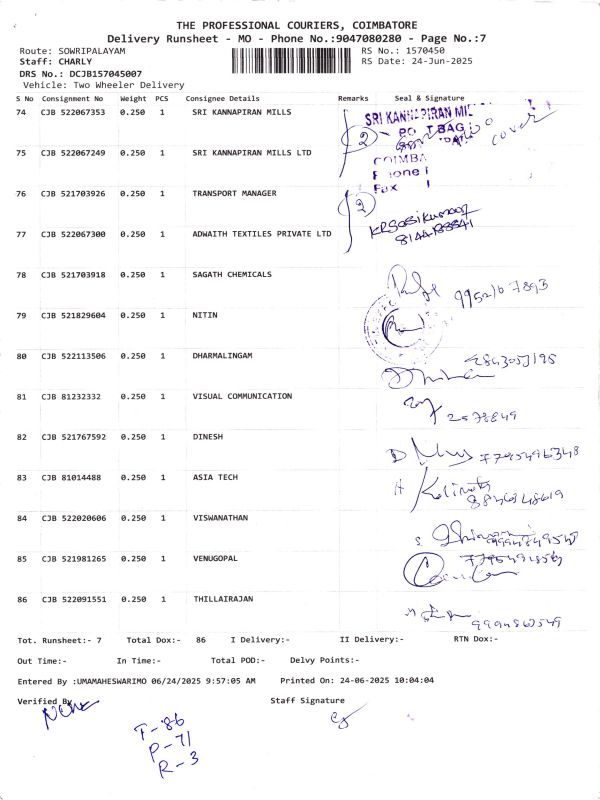 THE PROFESSIONAL COURIERS, COIMBATORE
Delivery Runsheet - MO - Phone No.:9047080280 - Page No.:7
Route: SOWRIPALAYAM RS No.: 1570450
Staff: CHARLY RS Date: 24-Jun-2025
DRS No.: DCJB157045007
Vehicle: Two Wheeler Delivery
S No Consignment No Weight PCS Consignee Details Remarks Seal & Signature
74 CJB 522067353 0.250 1 SRI KANNAPIRAN MILLS
SRI KANNAPIRAN MIL
2 cover
75 CJB 522067249 0.250 1 SRI KANNAPIRAN MILLS LTD
76 CJB 521703926 0.250 1 TRANSPORT MANAGER
2
77 CJB 522067300 0.250 1 ADWAITH TEXTILES PRIVATE LTD
78 CJB 521703918 0.250 1 SAGATH CHEMICALS
79 CJB 521829604 0.250 1 NITIN
80 CJB 522113506 0.250 1 DHARMALINGAM
81 CJB 81232332 0.250 1 VISUAL COMMUNICATION
2578849
82 CJB 521767592 0.250 1 DINESH
83 CJB 81014488 0.250 1 ASIA TECH
84 CJB 522020606 0.250 1 VISWANATHAN
85 CJB 521981265 0.250 1 VENUGOPAL
86 CJB 522091551 0.250 1 THILLAIRAJAN
Tot. Runsheet:- 7 Total Dox:- 86 I Delivery:- II Delivery:- RTN Dox:-
Out Time:- In Time:- Total POD:- Delvy Points:-
Entered By :UMAMAHESWARIMO 06/24/2025 9:57:05 AM Printed On: 24-06-2025 10:04:04
Verified By Staff Signature
T-86
P-71
R-3